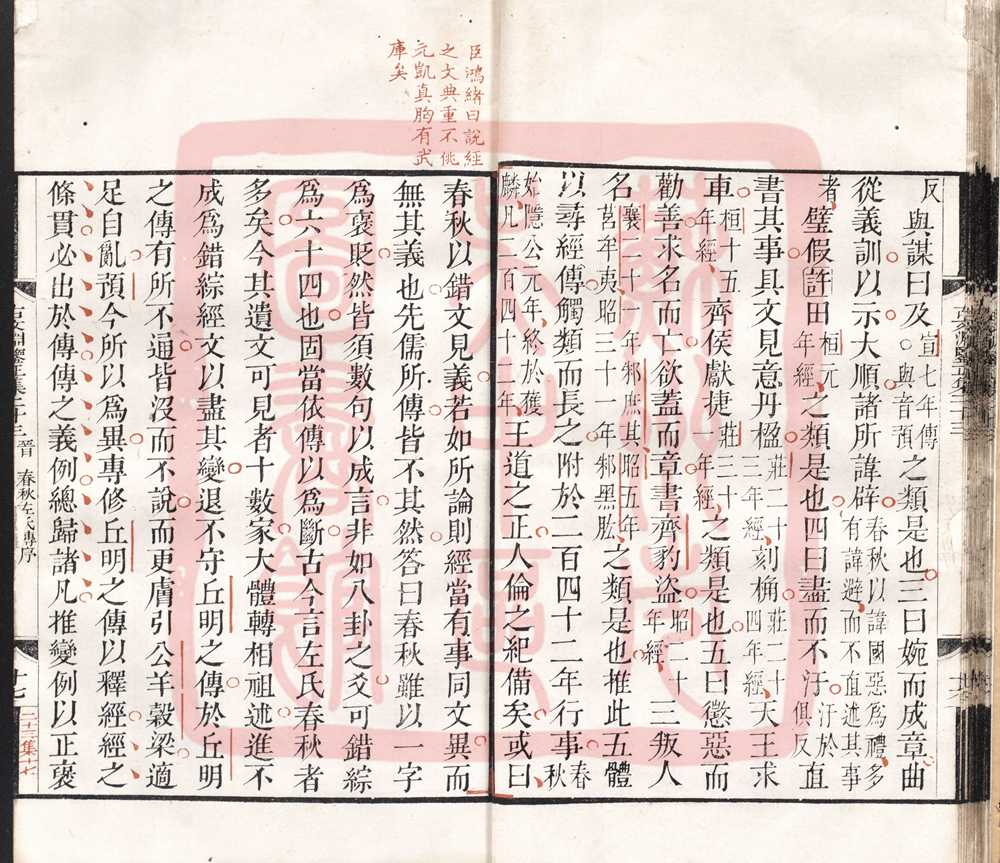 臣鴻緒曰說經
之文典重不佻
元凱真胸有武
庫矣
反 與謀曰及宣七年傳○與音預之類是也三曰婉而成章曲
從義訓以示大順諸所諱辟春秋以諱國惡為禮多有諱避而不直述其事
者璧假許田桓元年經之類是也四曰盡而不汙汙於俱反直
書其事具文見意丹楹莊二十三年經刻桷莊二十四年經天王求
車桓十五年經齊侯獻捷莊三十一年經之類是也五曰懲惡而
勸善求名而亡欲蓋而章書齊豹盜昭二十年經三叛人
名襄二十一年邾庶其昭五年莒牟夷昭三十一年邾黑肱之類是也推此五體
以尋經傳觸類而長之附於二百四十二年行事春秋
始隱公元年終於獲麟凡二百四十二年王道之正人倫之紀備矣或曰
春秋以錯文見義若如所論則經當有事同文異而
無其義也先儒所傳皆不其然答曰春秋雖以一字
爲褒貶然皆須數句以成言非如八卦之爻可錯綜
爲六十四也固當依傳以爲斷古今言左氏春秋者
多矣今其遺文可見者十數家大體轉相祖述進不
成爲錯綜經文以盡其變退不守丘明之傳於丘明
之傳有所不通皆沒而不說而更膚引公羊穀梁適
足自亂預今所以爲異專修丘明之傳以釋經經之
條貫必出於傳傳之義例總歸諸凡推變例以正褒
晉 春秋左氏傳序
十七
二十三集十七